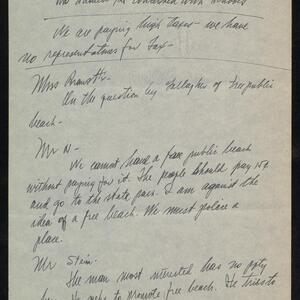 We are paying high taxes - we have
no representatives for Tax -
Miss
On the question by Gallagher of free public
beach -
Mr N -
We cannot have a free public beach
without paying for it. The people should pay 15¢
and go to the state park. I am against the
idea of a free beach. We must police a
place.
Mr Stein -
The man most interested has no ppty
to promote free beach. He tries to